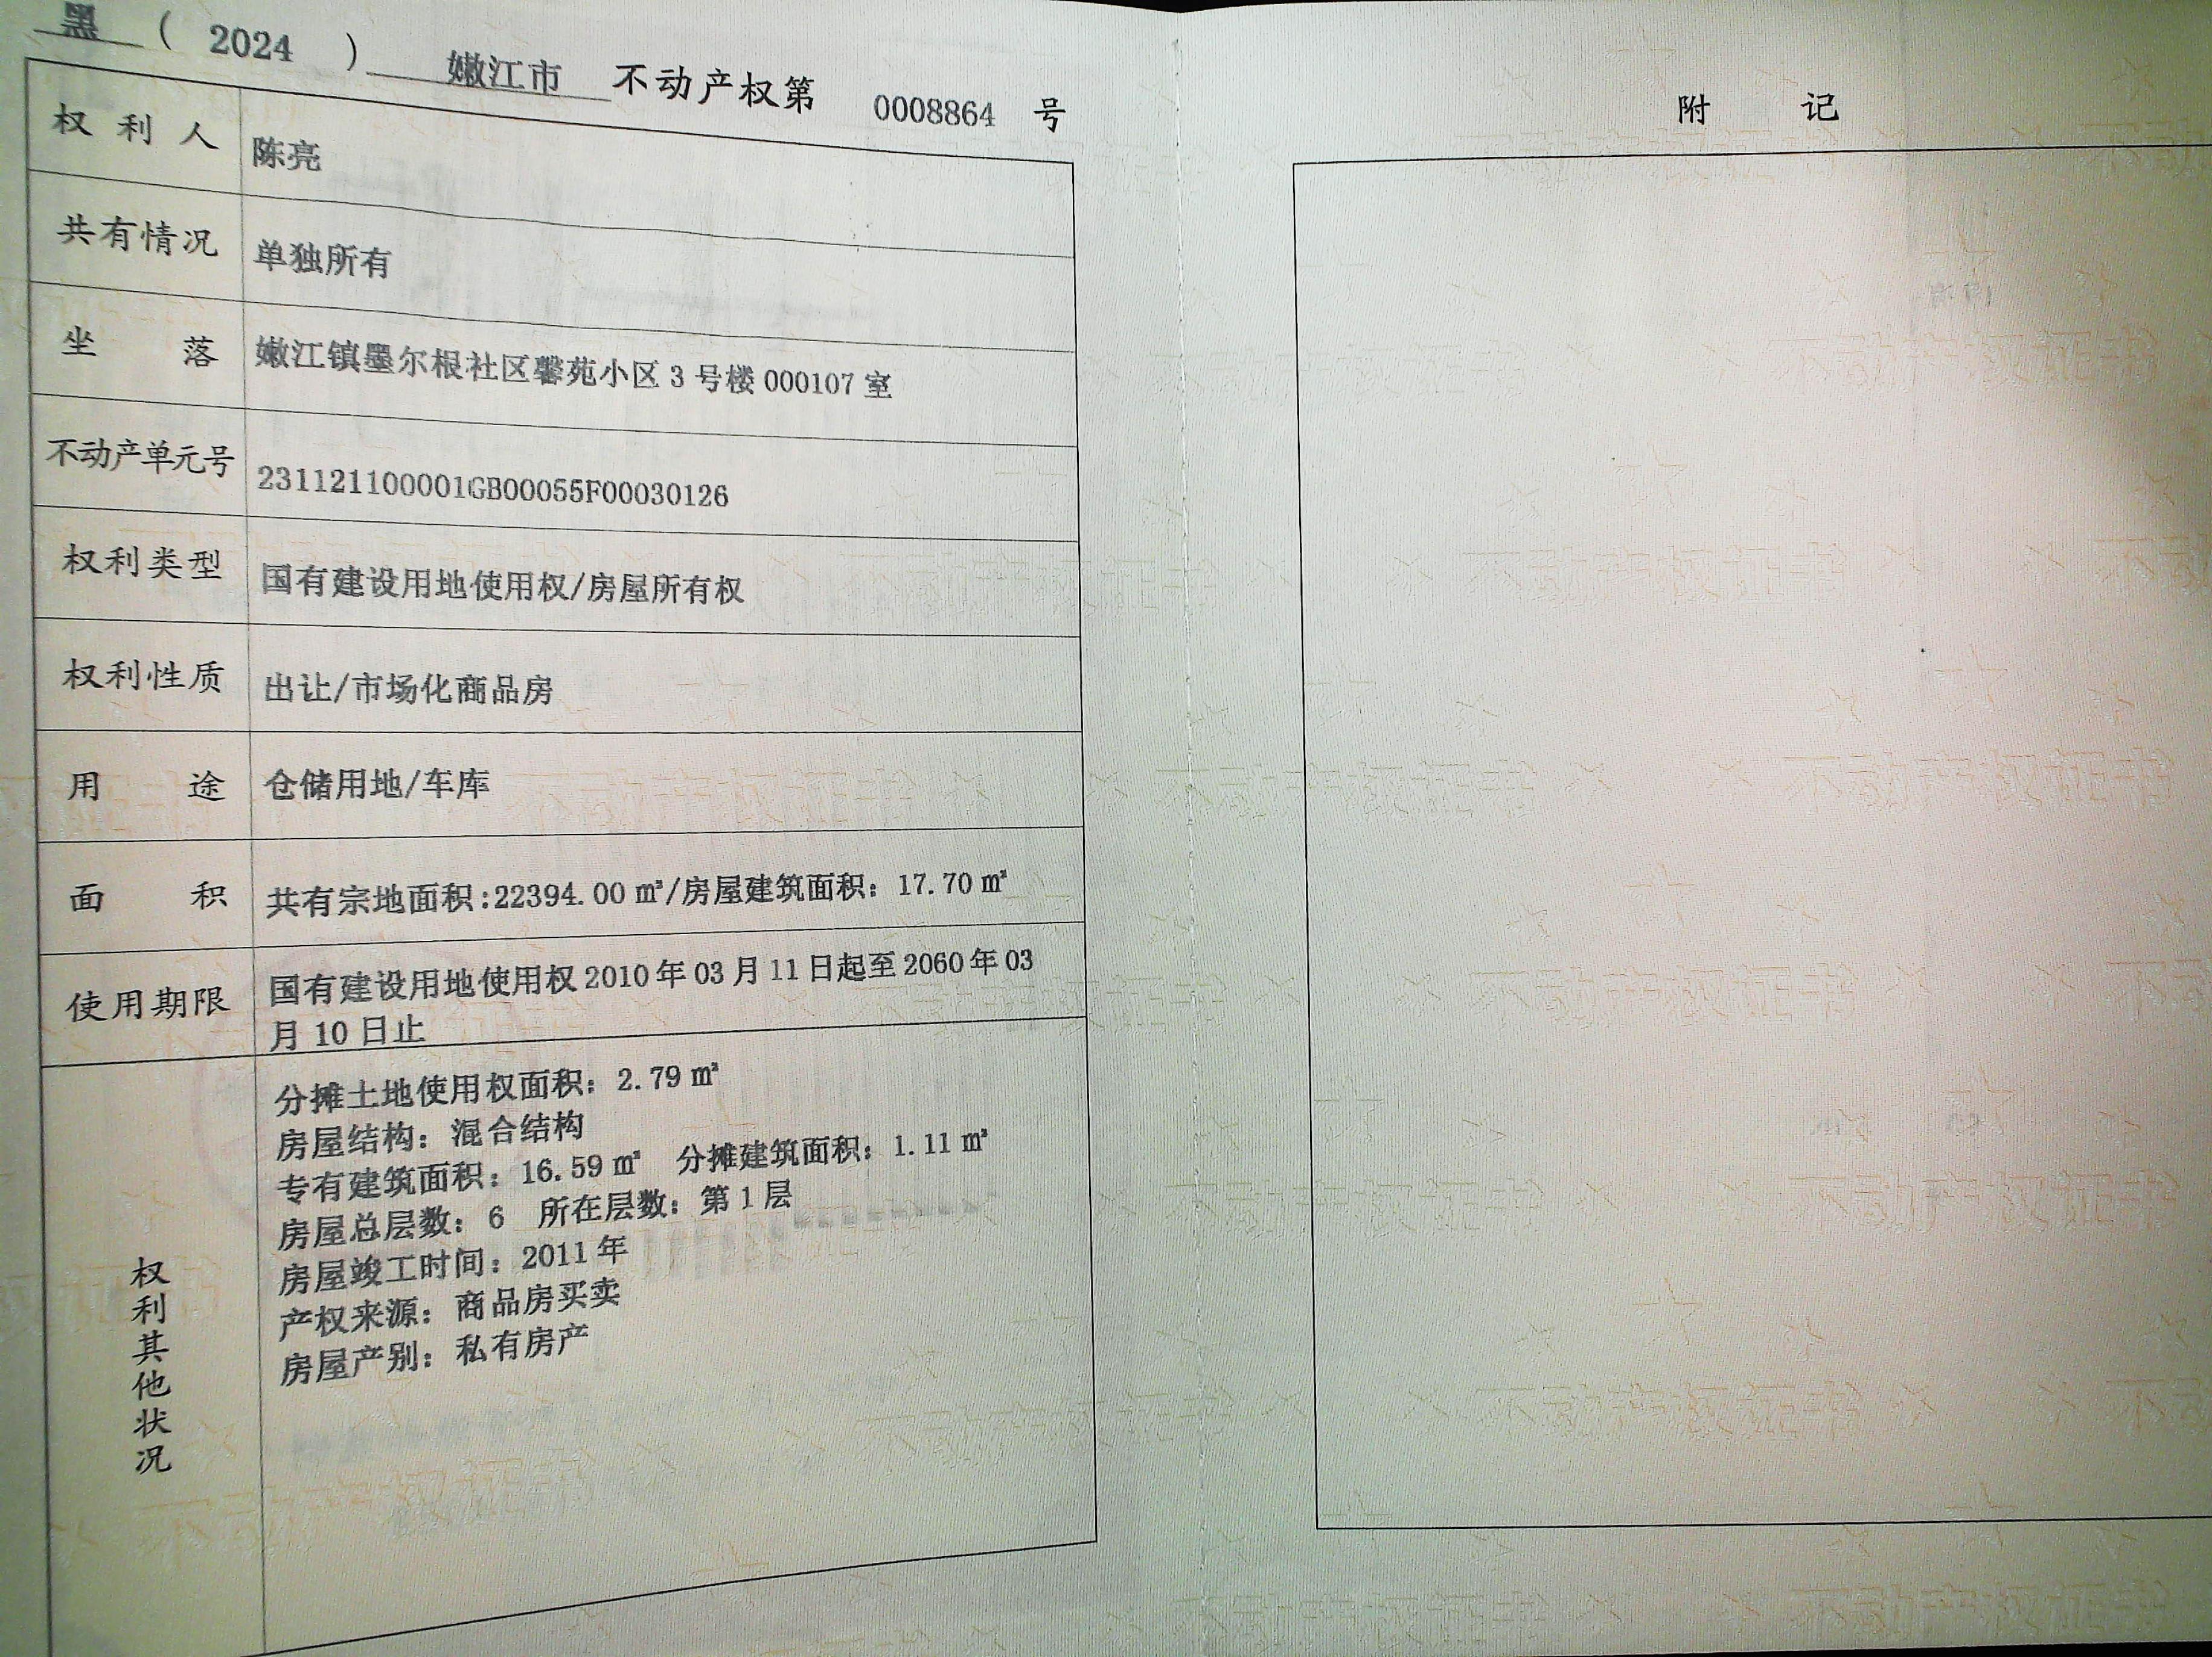 黑 ( 2024 ) 嫩江市 不动产权第 0008864 号
权利人 陈亮
共有情况 单独所有
坐落 嫩江镇墨尔根社区馨苑小区 3 号楼 000107 室
不动产单元号 231121100001GB00055F00030126
权利类型 国有建设用地使用权/房屋所有权
权利性质 出让/市场化商品房
用途 仓储用地/车库
面积 共有宗地面积:22394.00 ㎡/房屋建筑面积：17.70 ㎡
使用期限 国有建设用地使用权 2010 年 03 月 11 日起至 2060 年 03
月 10 日止
权利其他状况
分摊土地使用权面积：2.79 ㎡
房屋结构：混合结构
专有建筑面积：16.59 ㎡ 分摊建筑面积：1.11 ㎡
房屋总层数：6 所在层数：第 1 层
房屋竣工时间：2011 年
产权来源：商品房买卖
房屋产别：私有房产
附记